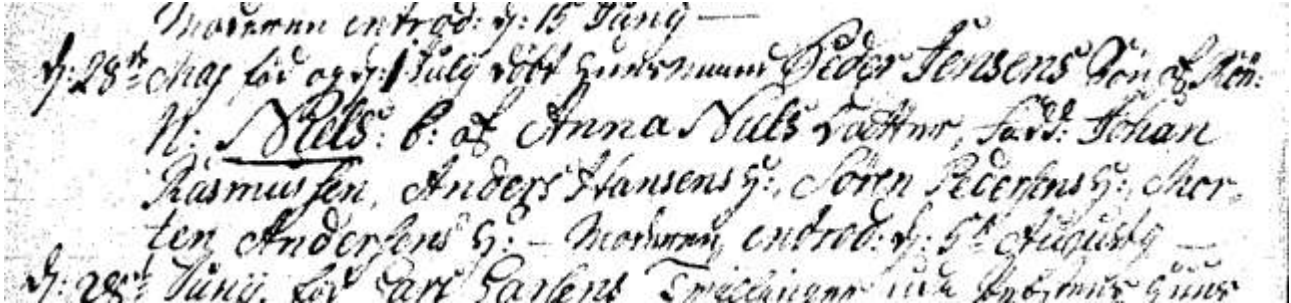 Moderen introd: d: 15 Junij —
d: 28de Maj fød og d: 1 Julij døbt Huusmand Peder Jensens Søn af Røn:
N: Niels: b: af Anna Niels Datter, fadd: Johan
Rasmussen, Anders Hansens H:, Søren Pedersens H:, Mor-
ten Andersens H: — Moderen introd: d: 5te Augusty —
d: 28de Junij, fød Lars Larsens Tvillinger Huus